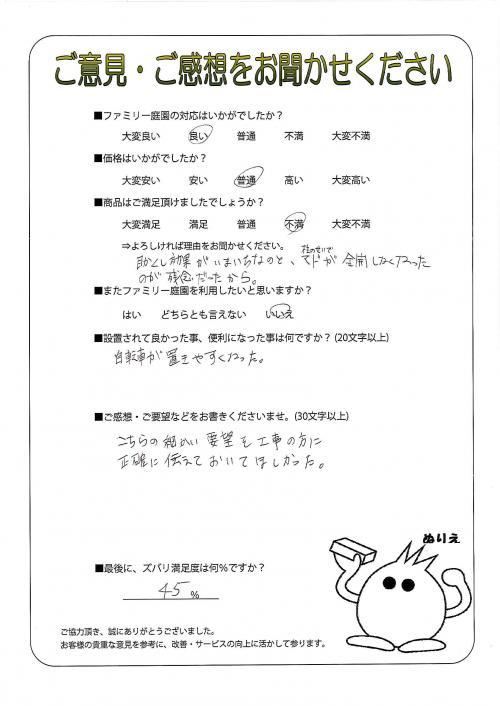 ご意見・ご感想をお聞かせください
■ファミリー庭園の対応はいかがでしたか？
大変良い 良い 普通 不満 大変不満
■価格はいかがでしたか？
大変安い 安い 普通 高い 大変高い
■商品はご満足頂けましたでしょうか？
大変満足 満足 普通 不満 大変不満
⇒よろしければ理由をお聞かせください。 柱のせいで
効果がいまいちなのと、 が全開しなくなった
のが残念だったから。
■またファミリー庭園を利用したいと思いますか？
はい どちらとも言えない いいえ
■設置されて良かった事、便利になった事は何ですか？(20文字以上)
自転車が置きやすくなった。
■ご感想・ご要望などをお書きくださいませ。(30文字以上)
こちらの細かい要望を工事の方に
正確に伝えておいてほしかった。
ぬりえ
■最後に、ズバリ満足度は何％ですか？
45 %
ご協力頂き、誠にありがとうございました。
お客様の貴重な意見を参考に、改善・サービスの向上に活かして参ります。